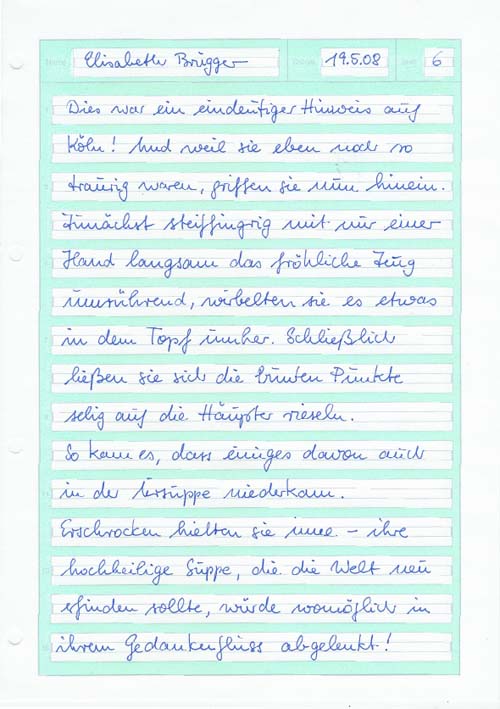 Elisabeth Brugger 19.5.08 6
Dies war ein eindeutiger Hinweis auf
Köln! Und weil sie eben noch so
traurig waren, griffen sie nun hinein.
Zunächst steiffingrig mit nur einer
Hand langsam das fröhliche Zeug
umrührend, wirbelten sie es etwas
in dem Topf umher. Schließlich
ließen sie sich die bunten Punkte
selig auf die Häupter rieseln.
So kam es, dass einiges davon auch
in der Ursuppe niederkam.
Erschrocken hielten sie inne – ihre
hochheilige Suppe, die die Welt neu
erfinden sollte, würde womöglich in
ihrem Gedankenfluss abgelenkt!